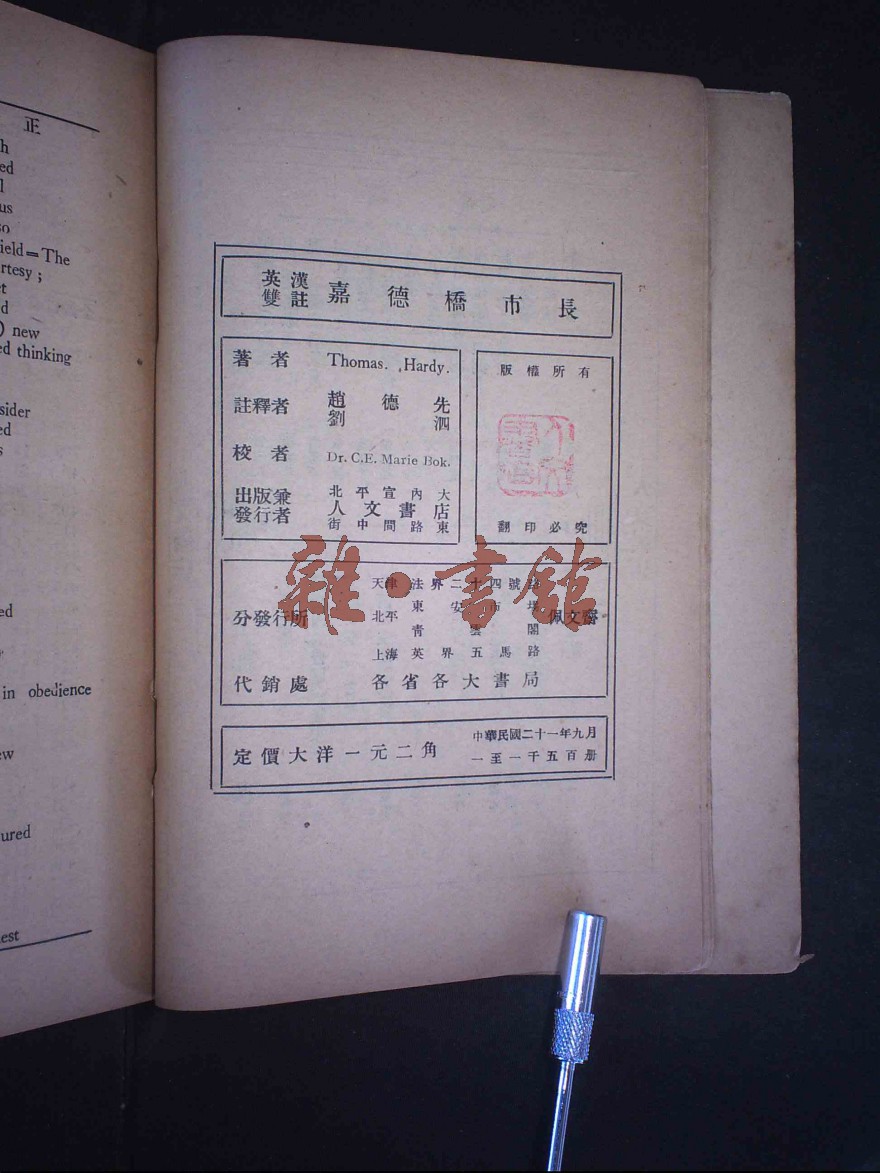 正
h
ed
l
us
so
ield=The
rtesy;
ct
d
) new
ed thinking
sider
ed
s
ed
in obedience
ew
ured
est
英漢雙註 嘉德橋市長
著者 Thomas. Hardy.
註釋者 趙德先
劉泗
校者 Dr. C.E. Marie Bok.
出版兼發行者 北平宣內大
人文書店
街中間路東
版權所有
翻印必究
分發行所 天津 法界二十四號路
北平 東安市場
青雲閣
佩文齋
上海英界五馬路
代銷處 各省各大書局
定價大洋一元二角
中華民國二十一年九月
一至一千五百册
雜·書館